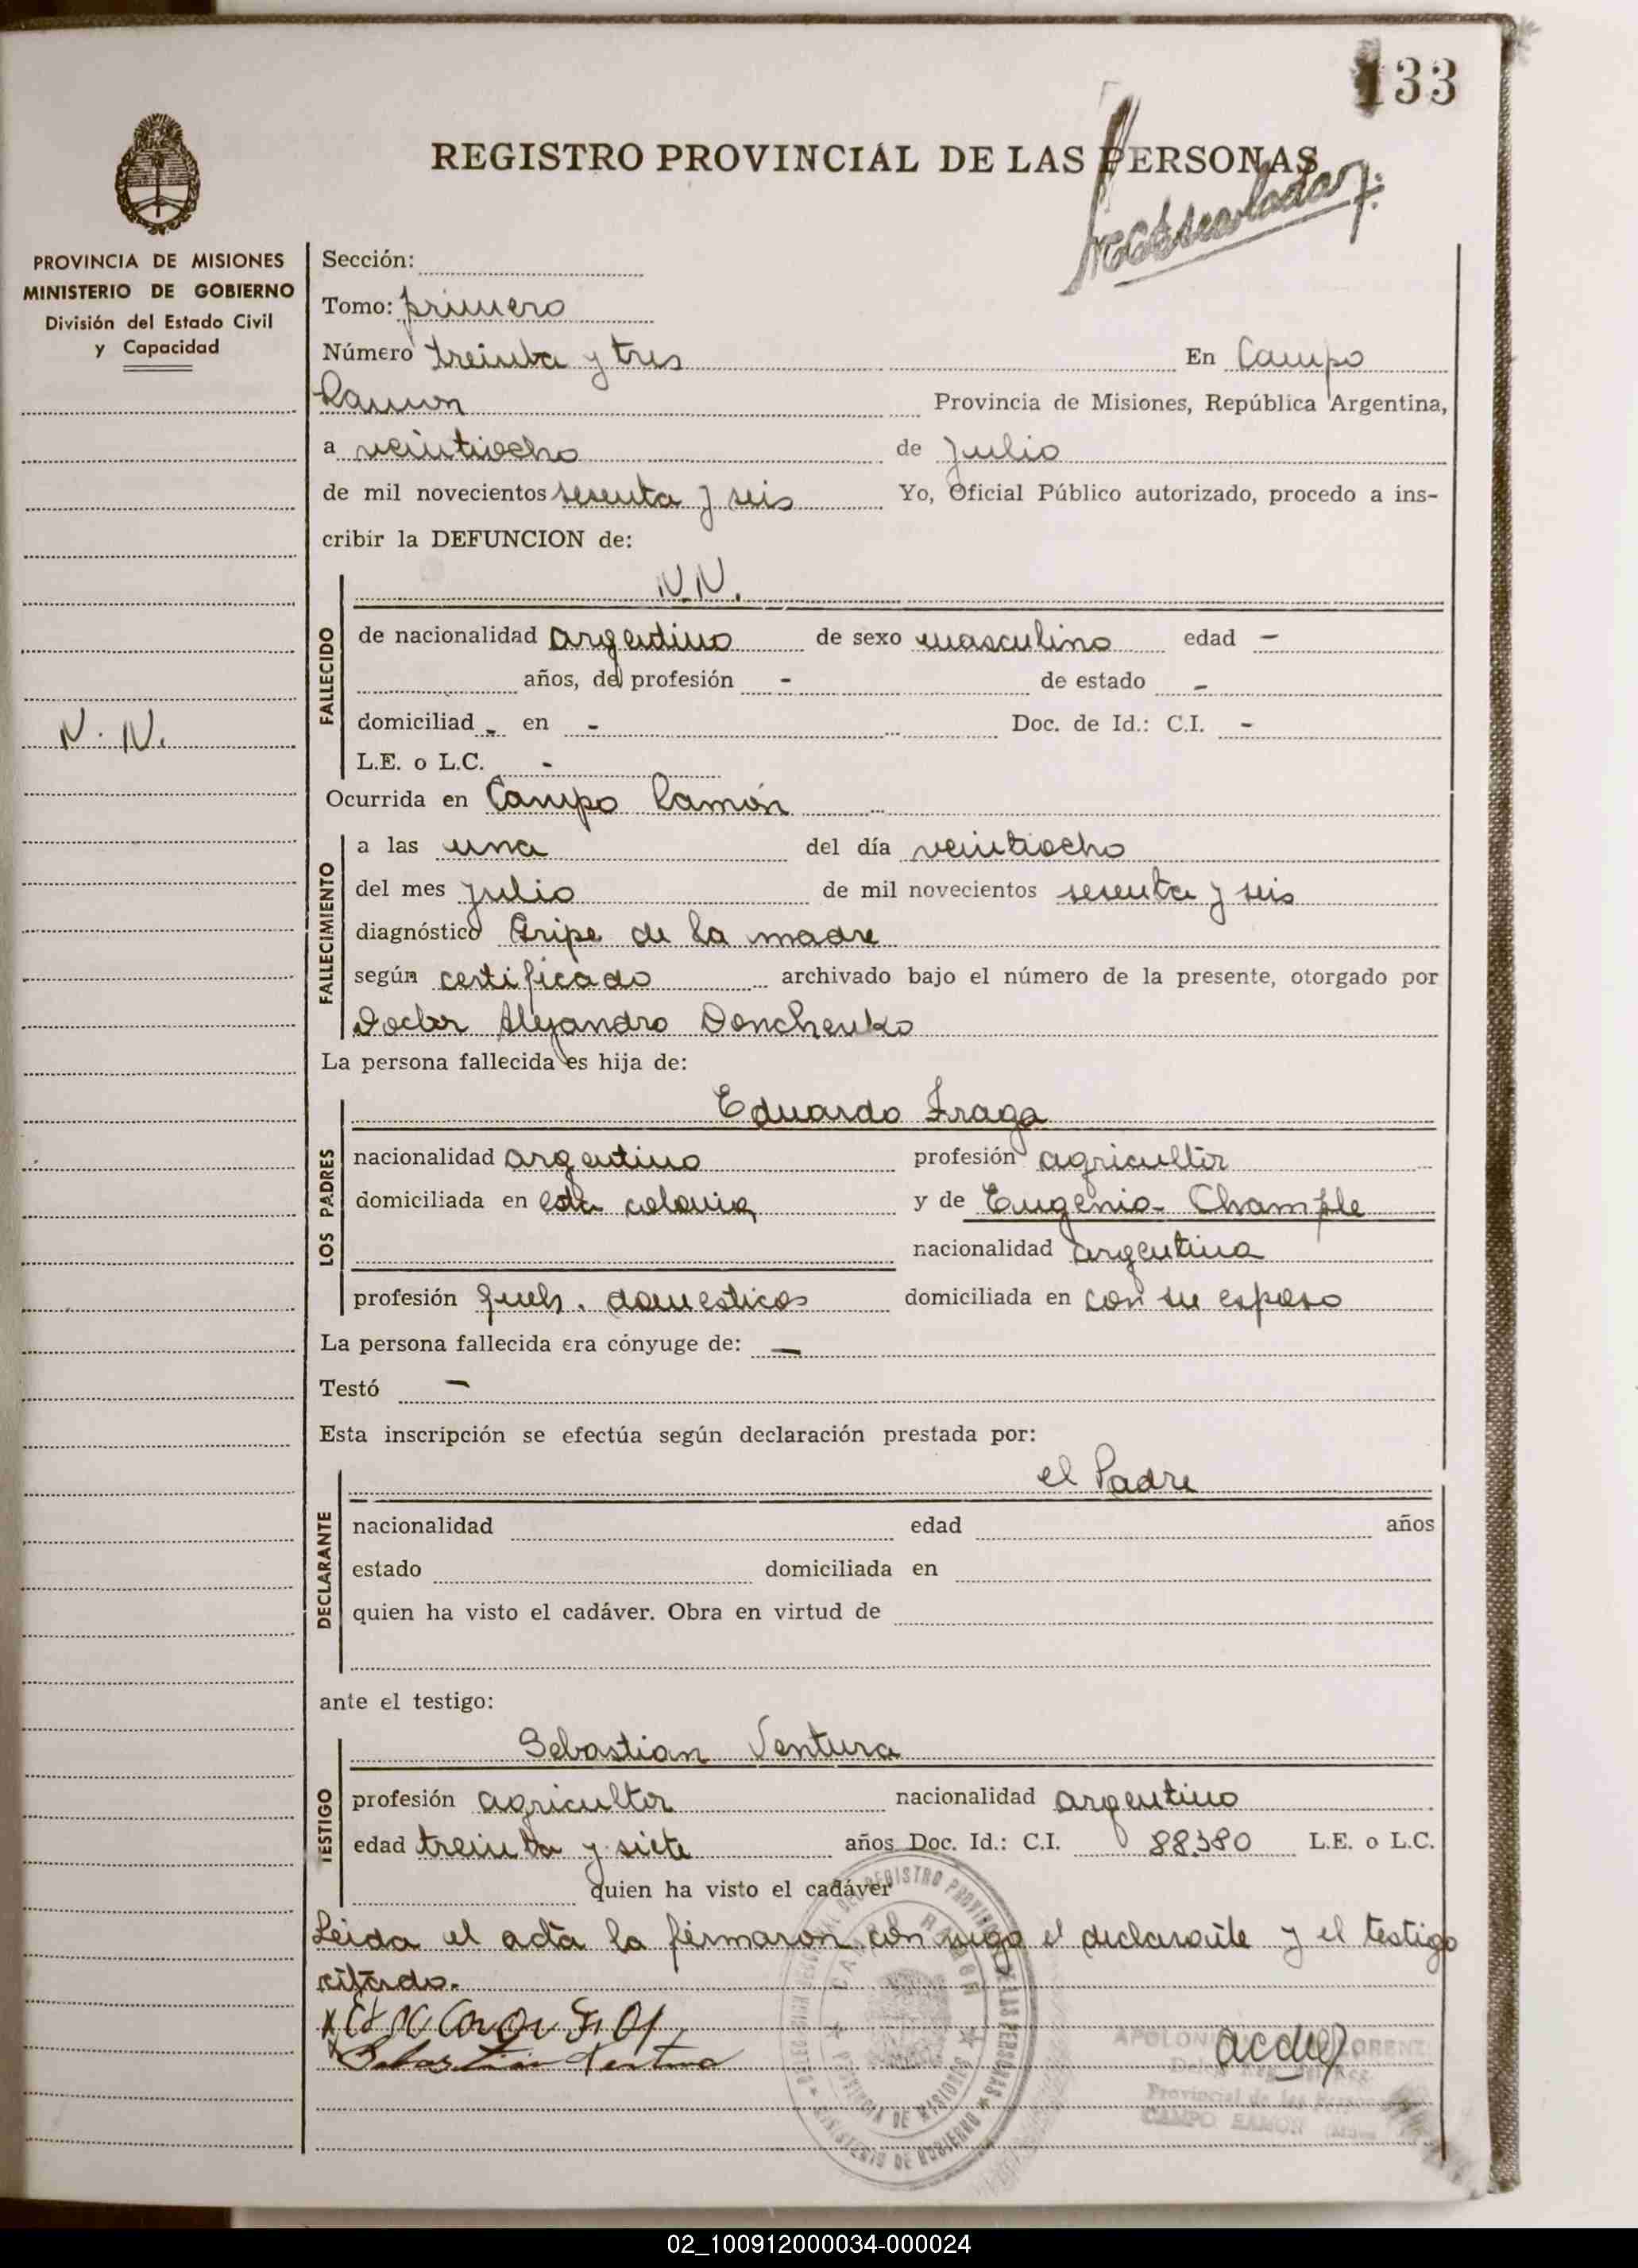 133
REGISTRO PROVINCIAL DE LAS PERSONAS
PROVINCIA DE MISIONES
MINISTERIO DE GOBIERNO
División del Estado Civil
y Capacidad
Sección:
Tomo: primero
Número treinta y tres En Campo
Ramon Provincia de Misiones, República Argentina,
a veintiocho de julio
de mil novecientos sesenta y seis Yo, Oficial Público autorizado, procedo a ins-
cribir la DEFUNCION de:
N.N.
FALLECIDO
de nacionalidad argentino de sexo masculino edad -
años, de profesión - de estado -
domiciliad - en - Doc. de Id.: C.I. -
N. N.
L.E. o L.C. -
Ocurrida en Campo Ramón
FALLECIMIENTO
a las una del día veintiocho
del mes julio de mil novecientos sesenta y seis
diagnóstico Gripe de la madre
según certificado archivado bajo el número de la presente, otorgado por
Doctor Alejandro Donchenko
La persona fallecida es hija de:
LOS PADRES
Eduardo Fraga
nacionalidad argentino profesión agricultor
domiciliada en esta colonia y de Eugenia Chample
nacionalidad argentina
profesión queh. domesticos domiciliada en con su esposo
La persona fallecida era cónyuge de: —
Testó -
Esta inscripción se efectúa según declaración prestada por:
DECLARANTE
el Padre
nacionalidad edad años
estado domiciliada en
quien ha visto el cadáver. Obra en virtud de
ante el testigo:
TESTIGO
Sebastian Ventura
profesión agricultor nacionalidad argentino
edad treinta y siete años Doc. Id.: C.I. 88.380 L.E. o L.C.
quien ha visto el cadáver
Leida el acta la firmaron con migo el declarante y el testigo
citado.-
Sebastian Ventura
CAMPO RAMON
PROVINCIA DE MISIONES
MINISTERIO DE GOBIERNO
Provincial de las Personas
CAMPO RAMON
02_100912000034-000024